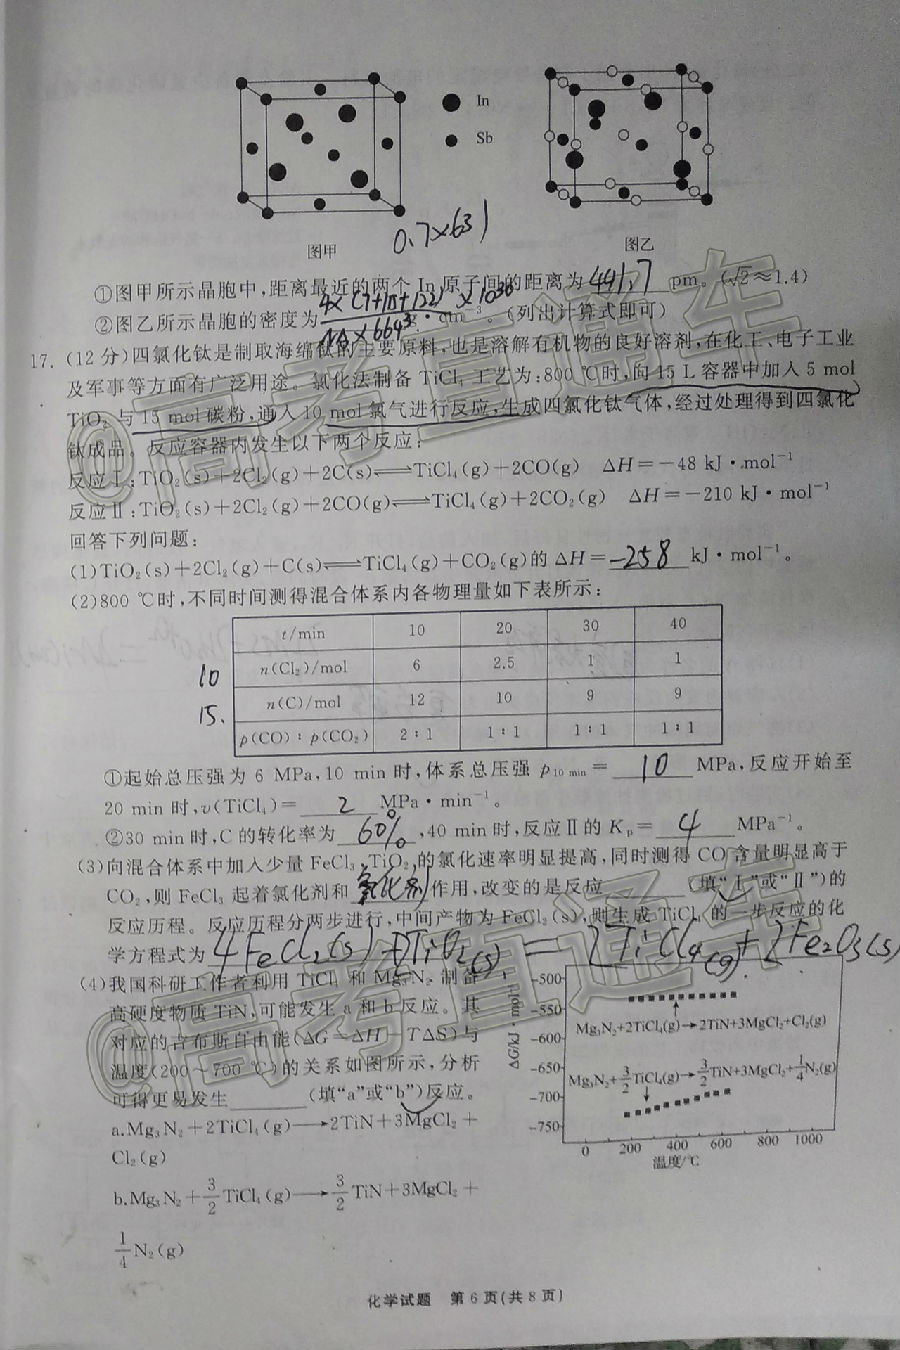 In
Sb
图甲
0.7×631
图乙
①图甲所示晶胞中,距离最近的两个 In 原子间的距离为 441.7 pm。(√2≈1.4)
②图乙所示晶胞的密度为 g·cm⁻³。(列出计算式即可)
17.(12 分)四氯化钛是制取海绵钛的主要原料,也是溶解有机物的良好溶剂,在化工、电子工业
及军事等方面有广泛用途。氯化法制备 TiCl₄ 工艺为:800 ℃时,向 15 L 容器中加入 5 mol
TiO₂ 与 15 mol 碳粉,通入 10 mol 氯气进行反应,生成四氯化钛气体,经过处理得到四氯化
钛成品。反应容器内发生以下两个反应:
反应Ⅰ:TiO₂(s)+2Cl₂(g)+2C(s)⇌TiCl₄(g)+2CO(g) ΔH=-48 kJ·mol⁻¹
反应Ⅱ:TiO₂(s)+2Cl₂(g)+2CO(g)⇌TiCl₄(g)+2CO₂(g) ΔH=-210 kJ·mol⁻¹
回答下列问题:
(1)TiO₂(s)+2Cl₂(g)+C(s)⇌TiCl₄(g)+CO₂(g)的 ΔH= -258 kJ·mol⁻¹。
(2)800 ℃时,不同时间测得混合体系内各物理量如下表所示:
t/min 10 20 30 40
10 n(Cl₂)/mol 6 2.5 1 1
15. n(C)/mol 12 10 9 9
p(CO):p(CO₂) 2:1 1:1 1:1 1:1
①起始总压强为 6 MPa,10 min 时,体系总压强 p₁₀ ₘᵢₙ= 10 MPa,反应开始至
20 min 时,v(TiCl₄)= 2 MPa·min⁻¹。
②30 min 时,C 的转化率为 60% ,40 min 时,反应Ⅱ的 Kₚ= 4 MPa⁻¹。
(3)向混合体系中加入少量 FeCl₃,TiO₂ 的氯化速率明显提高,同时测得 CO 含量明显高于
CO₂,则 FeCl₃ 起着氯化剂和 氧化剂 作用,改变的是反应 (填“Ⅰ”或“Ⅱ”)的
反应历程。反应历程分两步进行,中间产物为 FeCl₂(s),则生成 TiCl₄ 的一步反应的化
学方程式为 4FeCl₂(s)+ TiO₂(s) = 2TiCl₄(g)+2Fe₂O₃(s)
(4)我国科研工作者利用 TiCl₄ 和 Mg₃N₂ 制备
高硬度物质 TiN,可能发生 a 和 b 反应。其
对应的吉布斯自由能(ΔG=ΔH-TΔS)与
温度(200~700 ℃)的关系如图所示,分析
可得更易发生 (填“a”或“b”)反应。
a.Mg₃N₂+2TiCl₄(g)→2TiN+3MgCl₂+
Cl₂(g)
b.Mg₃N₂+3/2TiCl₄(g)→3/2TiN+3MgCl₂+
1/4N₂(g)
ΔG/kJ·mol⁻¹
-500
-550
Mg₃N₂+2TiCl₄(g)→2TiN+3MgCl₂+Cl₂(g)
-600
-650
Mg₃N₂+3/2TiCl₄(g)→3/2TiN+3MgCl₂+1/4N₂(g)
-700
-750
0 200 400 600 800 1000
温度/℃
化学试题 第 6 页(共 8 页)
@高考直通车
@高考直通车